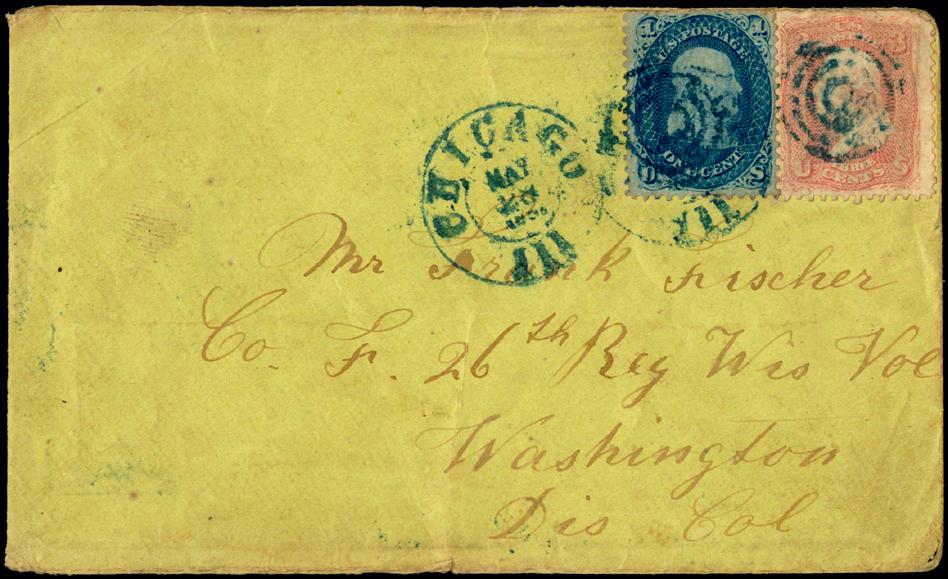 U.S. POSTAGE
ONE CENT
CENTS
CHICAGO
MAY
Ill
Ill
Mr Frank Fischer
Co. F. 26th Reg Wis Vol
Washington
Dis Col